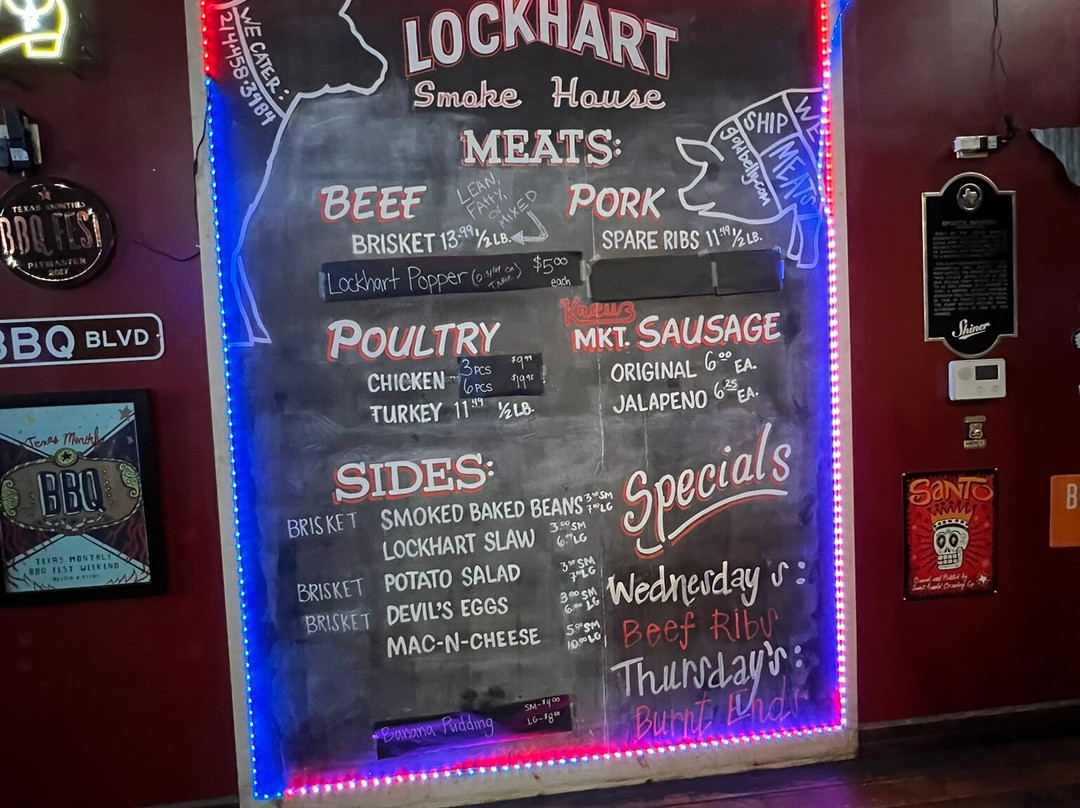 WE CATER:
214.458.3484
LOCKHART
Smoke House
MEATS:
SHIP
WE
MEATS
goldbelly.com
BEEF
LEAN,
FATTY,
or
MIXED
BRISKET 13.99 1/2 LB.
Lockhart Popper
$5.00
each
PORK
SPARE RIBS 11.49 1/2 LB.
POULTRY
CHICKEN 3 PCS $9.99
6 PCS
TURKEY 11.49 1/2 LB.
Kreuz
MKT. SAUSAGE
ORIGINAL 6.00 EA.
JALAPENO 6.25 EA.
SIDES:
BRISKET SMOKED BAKED BEANS SM
LG
LOCKHART SLAW 3.00 SM
LG
BRISKET POTATO SALAD SM
LG
BRISKET DEVIL'S EGGS 3.00 SM
6.00 LG
MAC-N-CHEESE SM
10.00 LG
Banana Pudding SM-$4.00
LG-$8.00
Specials
Wednesday's:
Beef Ribs
Thursday's:
Burnt Ends
TEXAS MONTHLY
BBQ FEST
PITMASTER
2017
BBQ BLVD
Texas Monthly
BBQ
TEXAS MONTHLY
BBQ FEST WEEKEND
Shiner
SANTO
B